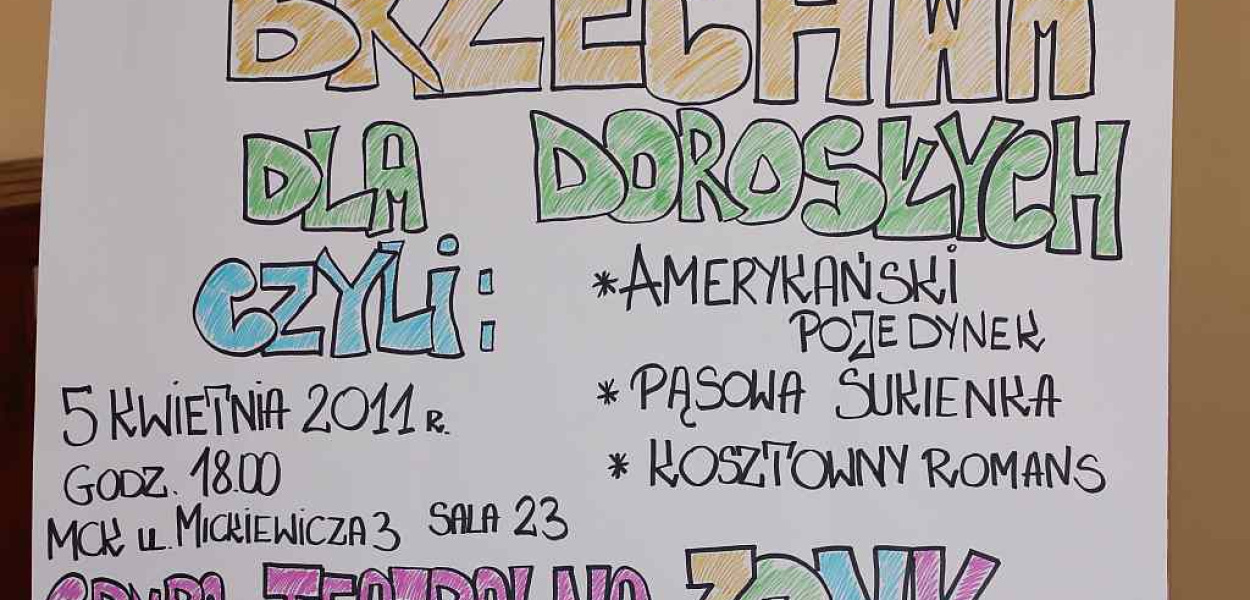 BRZECHWA
DLA DOROSŁYCH
CZYLI:
*AMERYKAŃSKI
POJEDYNEK
* PĄSOWA SUKIENKA
* KOSZTOWNY ROMANS
5 KWIETNIA 2011 R.
GODZ. 18.00
MCK UL. MICKIEWICZA 3 SALA 23
GRUPA TEATRALNA ZONK